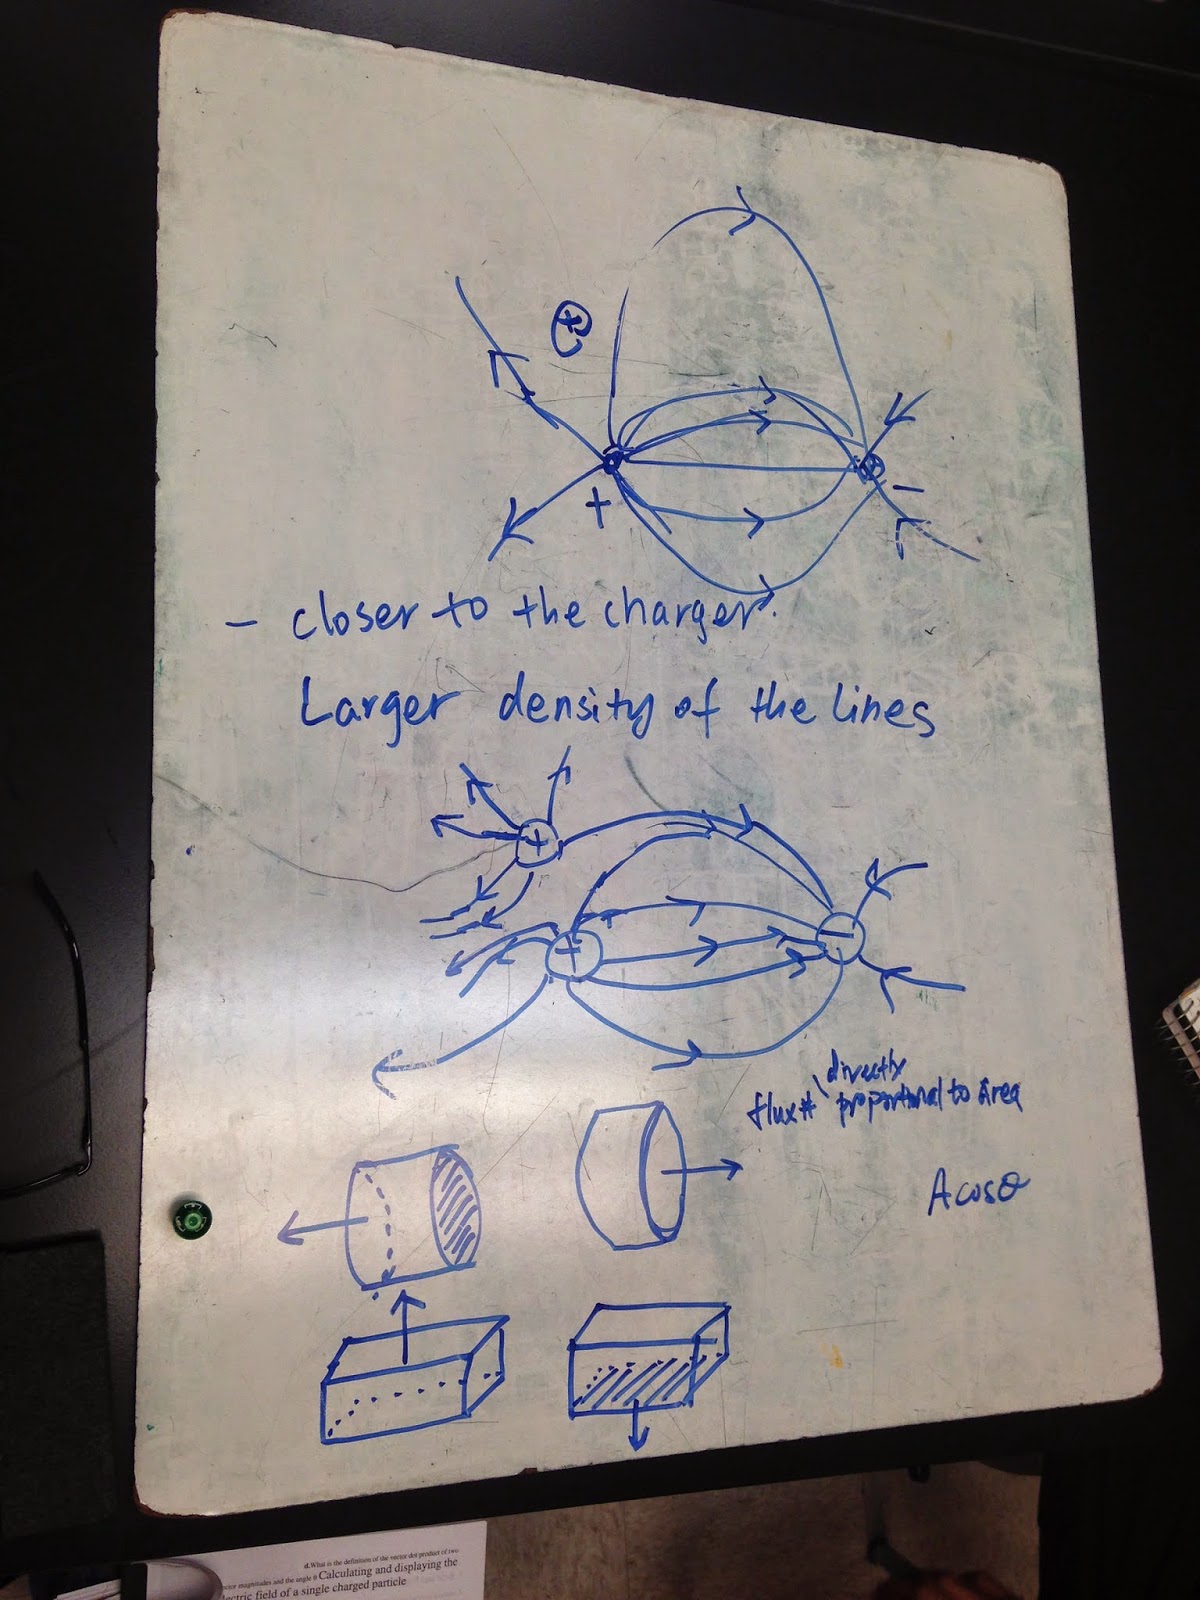 +
−
- closer to the charger.
Larger density of the lines
+
+
−
directly
flux # \ proportional to Area
A cos θ
d.What is the definition of the vector dot product of two
ctor magnitudes and the angle θ Calculating and displaying the
lectric field of a single charged particle